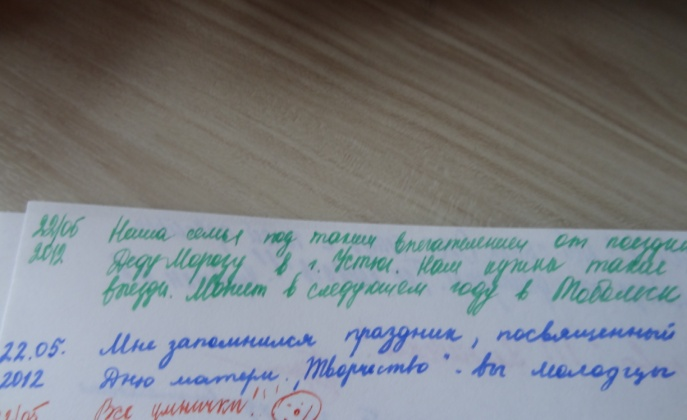 22/05 Наша семья под таким впечатлением от поездки
2012 Деду Морозу в г. Устюг. Нам нужны такие
выезды. Может в следующем году в Тобольск
22.05. Мне запомнился праздник, посвященный
2012 Дню матери. „Творчество" - вы молодцы
2/05 Все умнички!!!